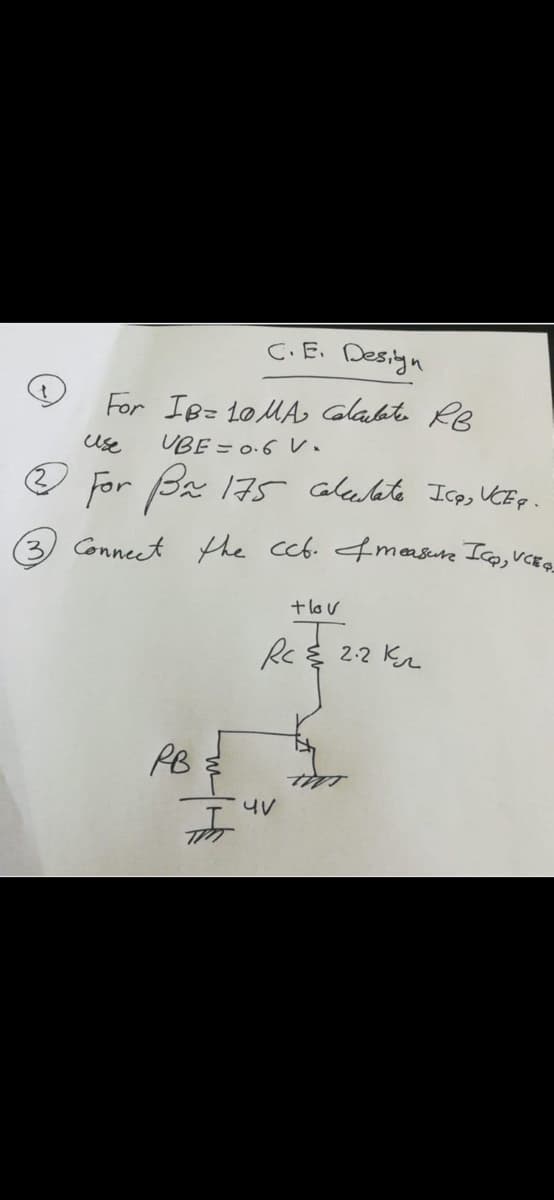 C.E. Design
① For IB= 10 MA, Calculate RB
use VBE = 0.6 V.
② For β≈ 175 calculate ICQ, VCEQ.
③ Connect the cct. & measure ICQ, VCEQ.
+10V
RC 2.2 KΩ
RB
4V